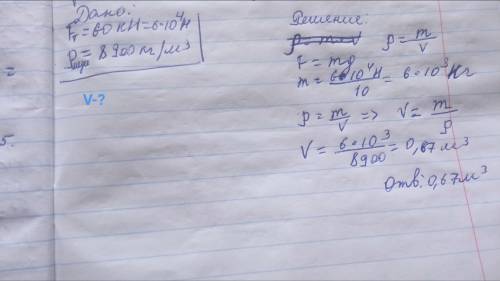 Дано:
Fт = 60 кН = 6·10⁴Н
ρмеди = 8900 кг/м³
V-?
=
5.
Решение:
ρ = m·V ρ = m/V
F = mg
m = 6·10⁴Н/10 = 6·10³ Кг
ρ = m/V => V = m/ρ
V = 6·10³/8900 = 0,67 м³
Отв: 0,67 м³